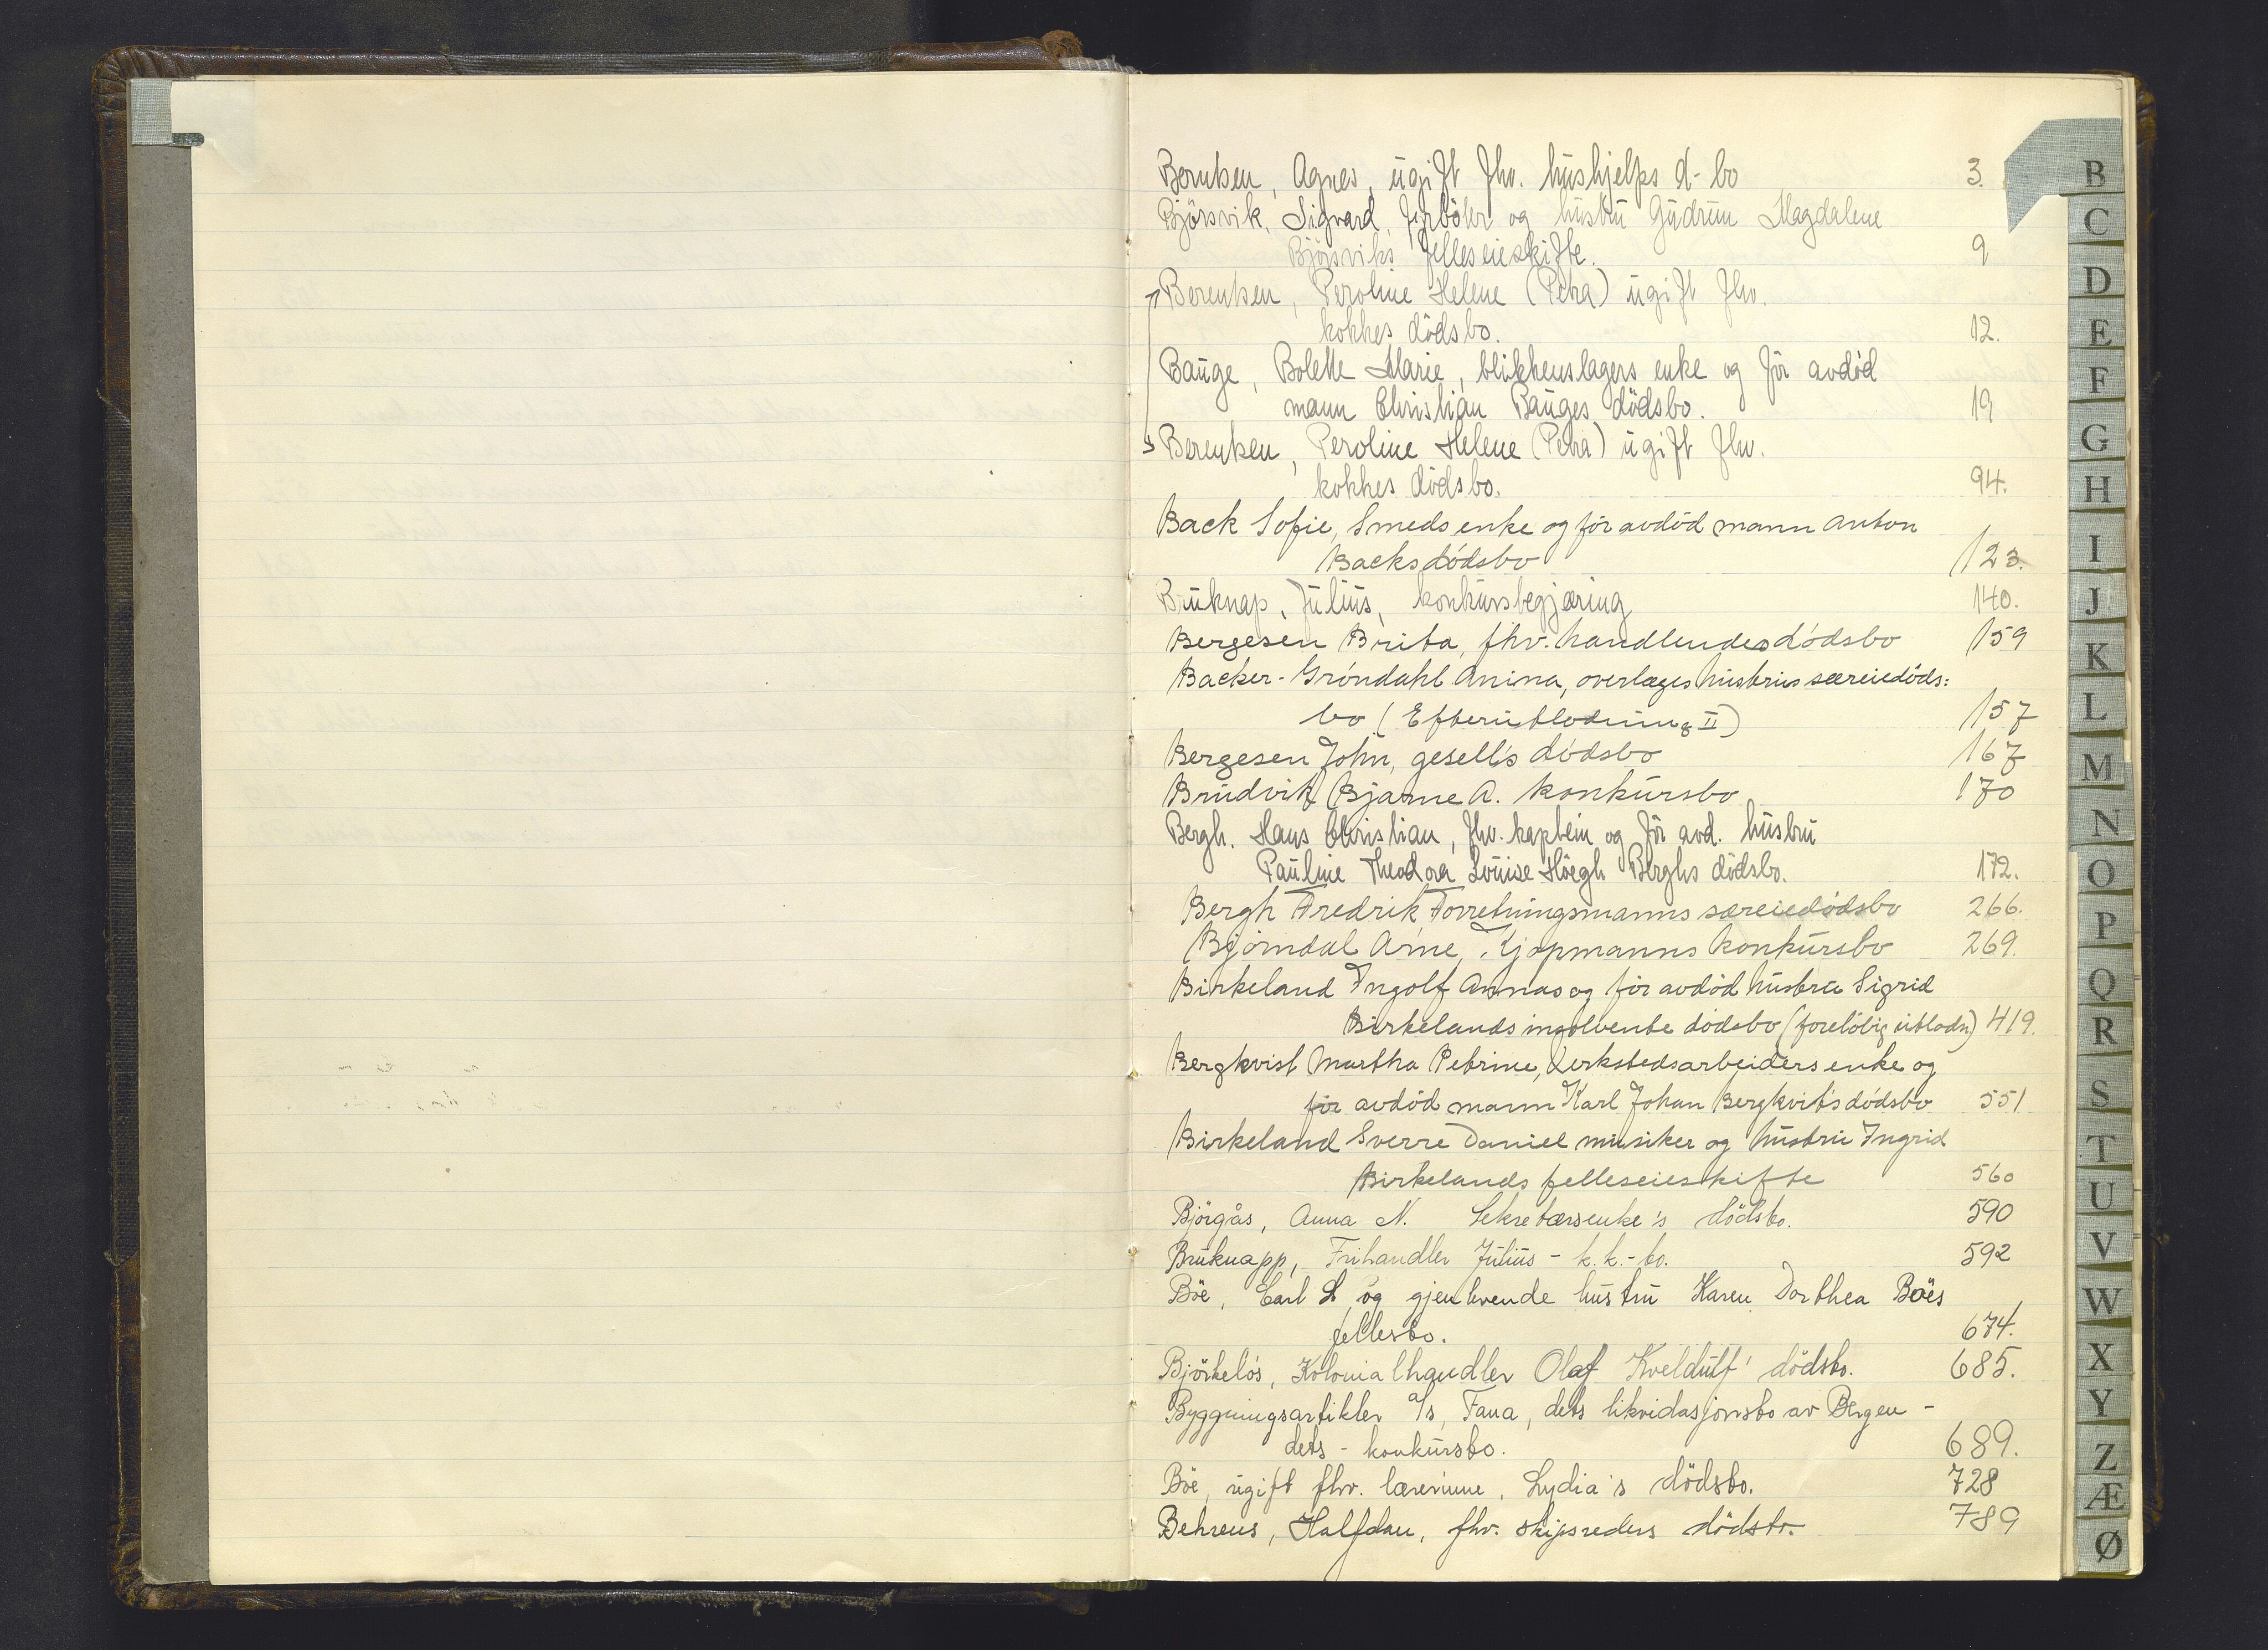 Berntsen, Agnes, ugift fhv. hushjelps d-bo 3.
Björsvik, Sigvard, fyrböter og hustru Gudrun Magdalene
Björsviks felleseieskifte. 9
Berentsen, Peroline Helene (Petra) ugift fhv.
kokkes dödsbo. 12.
Bauge, Bolette Marie, blikkenslagers enke og för avdöd
mann Christian Bauges dödsbo. 19
Berentsen, Peroline Helene (Petra) ugift fhv.
kokkes dödsbo. 94.
Back Sofie, Smeds enke og för avdöd mann Anton
Backs dödsbo 123.
Bruknap, Julius, konkursbegjæring 140.
Bergesen Brita, fhv. handlendes dödsbo 159
Backer-Gröndahl Anina, overlæges hustrus særeiedöds:
bo (Efterutlodning II) 157
Bergesen John, gesell's dödsbo 167
Brudvik Bjarne A. konkursbo 170
Bergh, Hans Christian, fhv. kaptein og för avd. hustru
Pauline Theodora Louise Höegh Berghs dödsbo. 172.
Bergh Fredrik Forretningsmanns særeiedödsbo 266.
Björndal Arne, Kjøpmanns konkursbo 269.
Birkeland Ingolf Annas og för avdöd hustru Sigrid
Birkelands insolvente dödsbo (forelöbig utlodn) 419.
Bergkvist Martha Petrine, Verkstedsarbeiders enke og
för avdöd mann Karl Johan Bergkvits dödsbo 551
Birkeland Sverre Daniel musiker og hustru Ingrid
Birkelands felleseieskifte 560
Björgås, Anna N. Sekretærsenke's dödsbo. 590
Bruknapp, Frihandler Julius - k.k.-bo. 592
Böe, Carl L og gjenlevende hustru Karen Dorthea Böes
fellesbo. 674.
Björkelös, Kolonialhandler Olaf Kveldulf' dödsbo. 685.
Byggningsartikler A/s, Fana, dets likvidasjonsbo av Bergen -
dets - konkursbo. 689.
Böe, ugift fhv. lærerinne, Lydia's dödsbo. 728
Behrens, Halfdan, fhv. skipsreders dödsbo. 789
B
C
D
E
F
G
H
I
J
K
L
M
N
O
P
Q
R
S
T
U
V
W
X
Y
Z
Æ
Ø